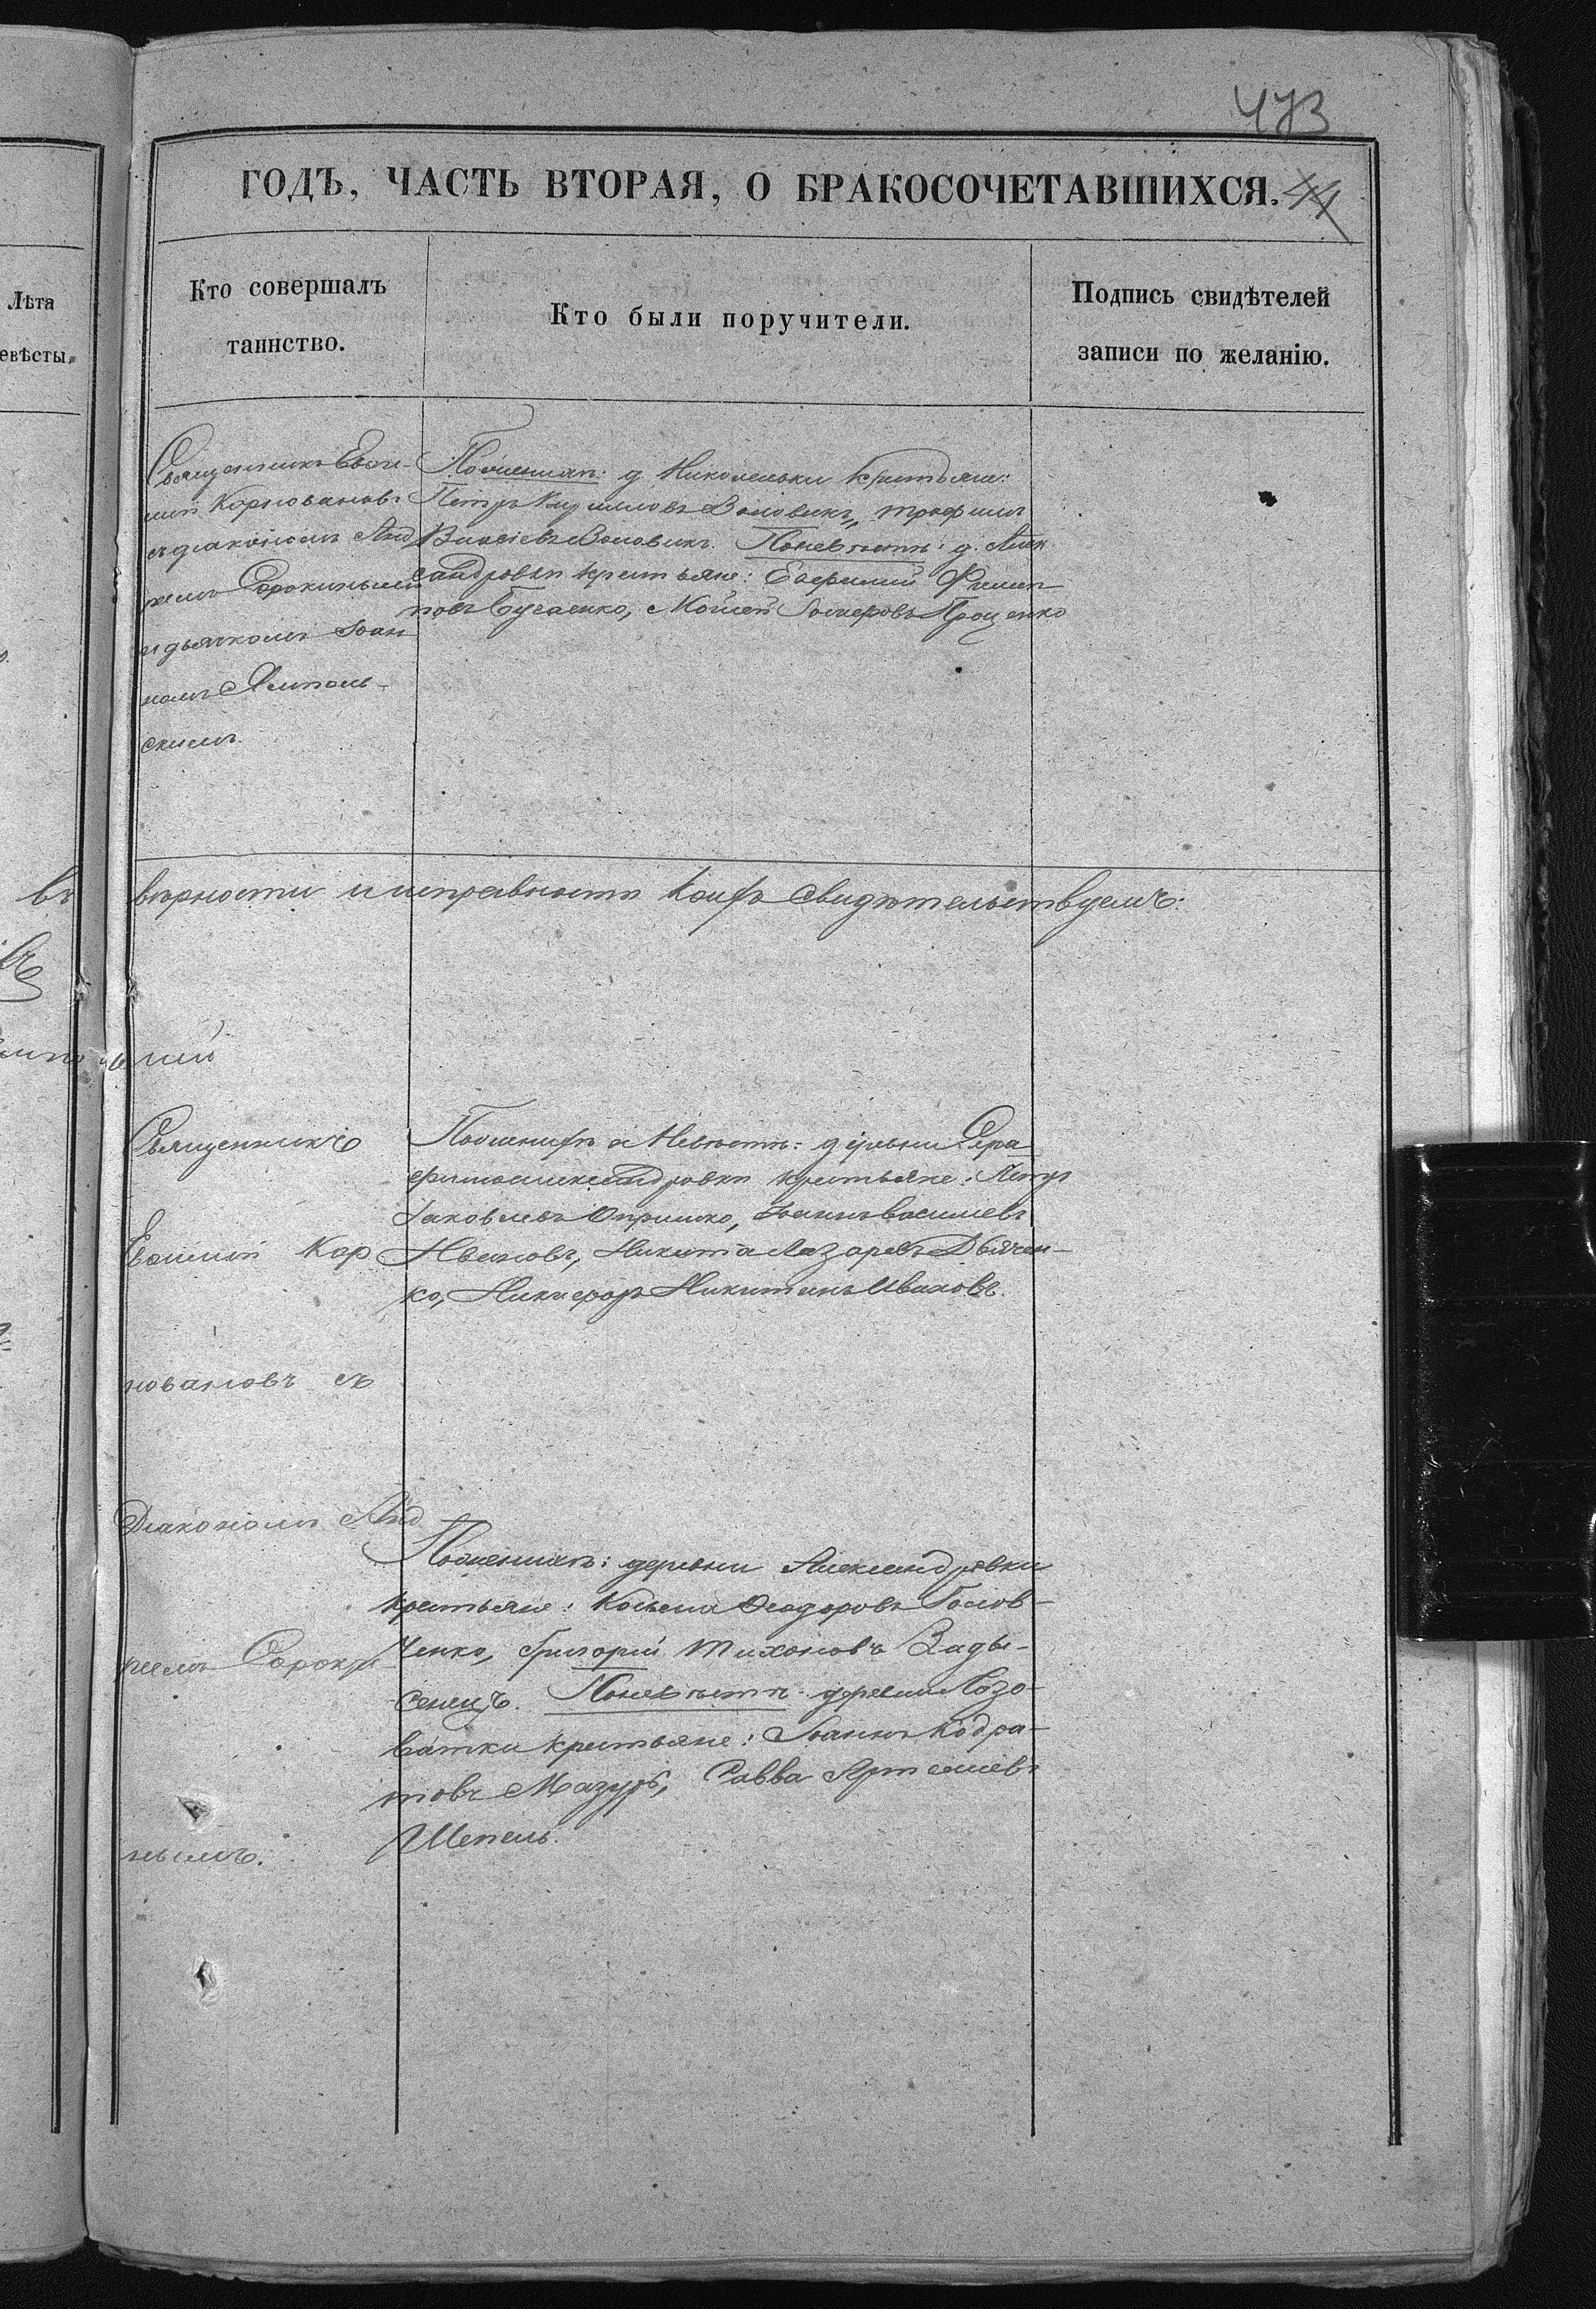 473
ГОДЪ, ЧАСТЬ ВТОРАЯ, О БРАКОСОЧЕТАВШИХСЯ.
44
Лѣта
евѣсты.
Кто совершалъ
таинство.
Кто были поручители.
Подпись свидѣтелей
записи по желанію.
Священникъ
мій Корновановъ
съ діакономъ Анд
реемъ Сорокинымъ
и дьячкомъ Іоан
номъ Ямполь-
скимъ.
По женихѣ: д. Николаевки крестьяне:
Петръ Кирилловъ Воловикъ, Трофимъ
Власіевъ Воловикъ. По невѣстѣ: д. Алек
сандровки крестьяне: Евфимій Филип
повъ Бугаенко, Моисей Проценко
въ вѣрности и исправности коихъ свидѣтельствуемъ:
Священникъ
Кор
новановъ съ
Діакономъ Анд
реемъ Сороки
нымъ.
По женихѣ и невѣстѣ: деревни Сера
фимоалександровки крестьяне: Петръ
Іаковлевъ Опришко, Іоаннъ Васильевъ
Ивановъ, Никита Лазаревъ Дьячен-
ко, Никифоръ Никитинъ Ивановъ.
По женихѣ: деревни Александровки
крестьяне: Косьма Ѳеодоровъ Голов-
ченко, Григорій Тихоновъ Зады-
сенецъ. По невѣстѣ: деревни Лозо-
ватки крестьяне: Іоаннъ Кодра-
товъ Мазуръ, Савва Артемьевъ
Шепель.